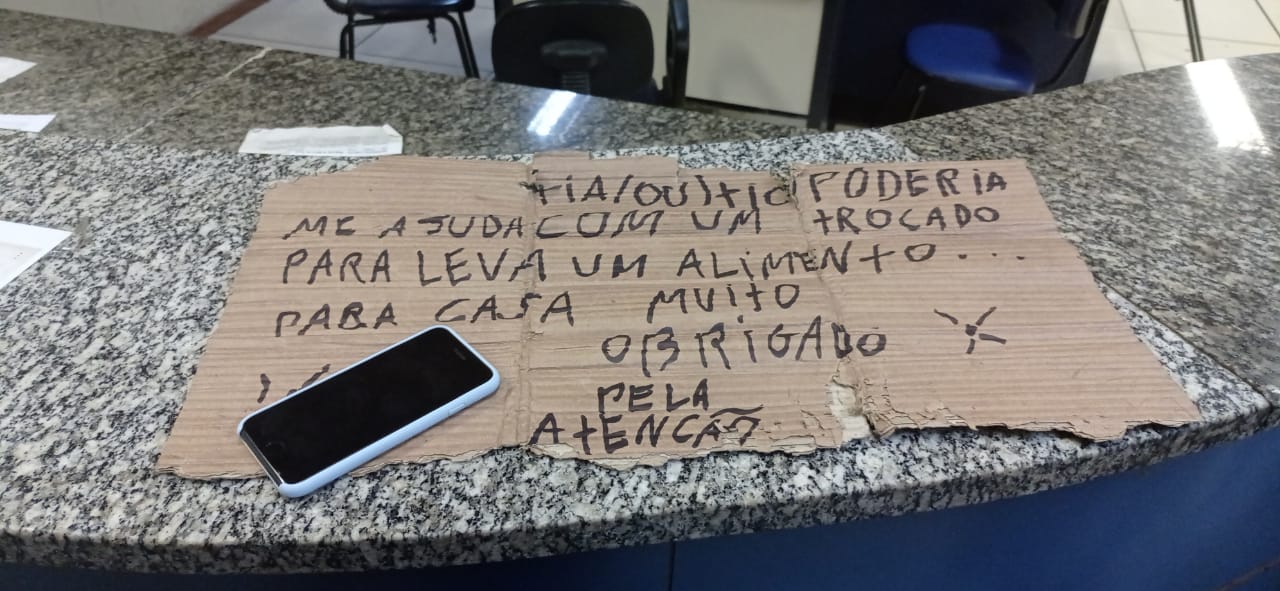 TIA(OU)TIO PODERIA
ME AJUDA COM UM TROCADO
PARA LEVA UM ALIMENTO...
PARA CASA MUITO
OBRIGADO
PELA
ATENCÃO